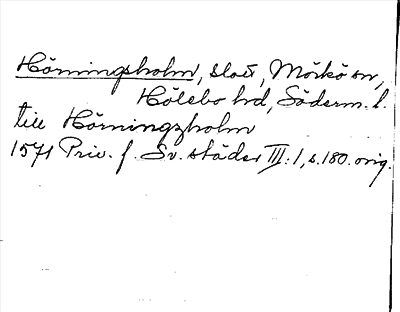 Hörningsholm, slott, Mörkö sn,
Hölebo hd, Söderm. l.
till Hörningzholm
1571 Priv. f. Sv. städer III:1, s. 180. orig.